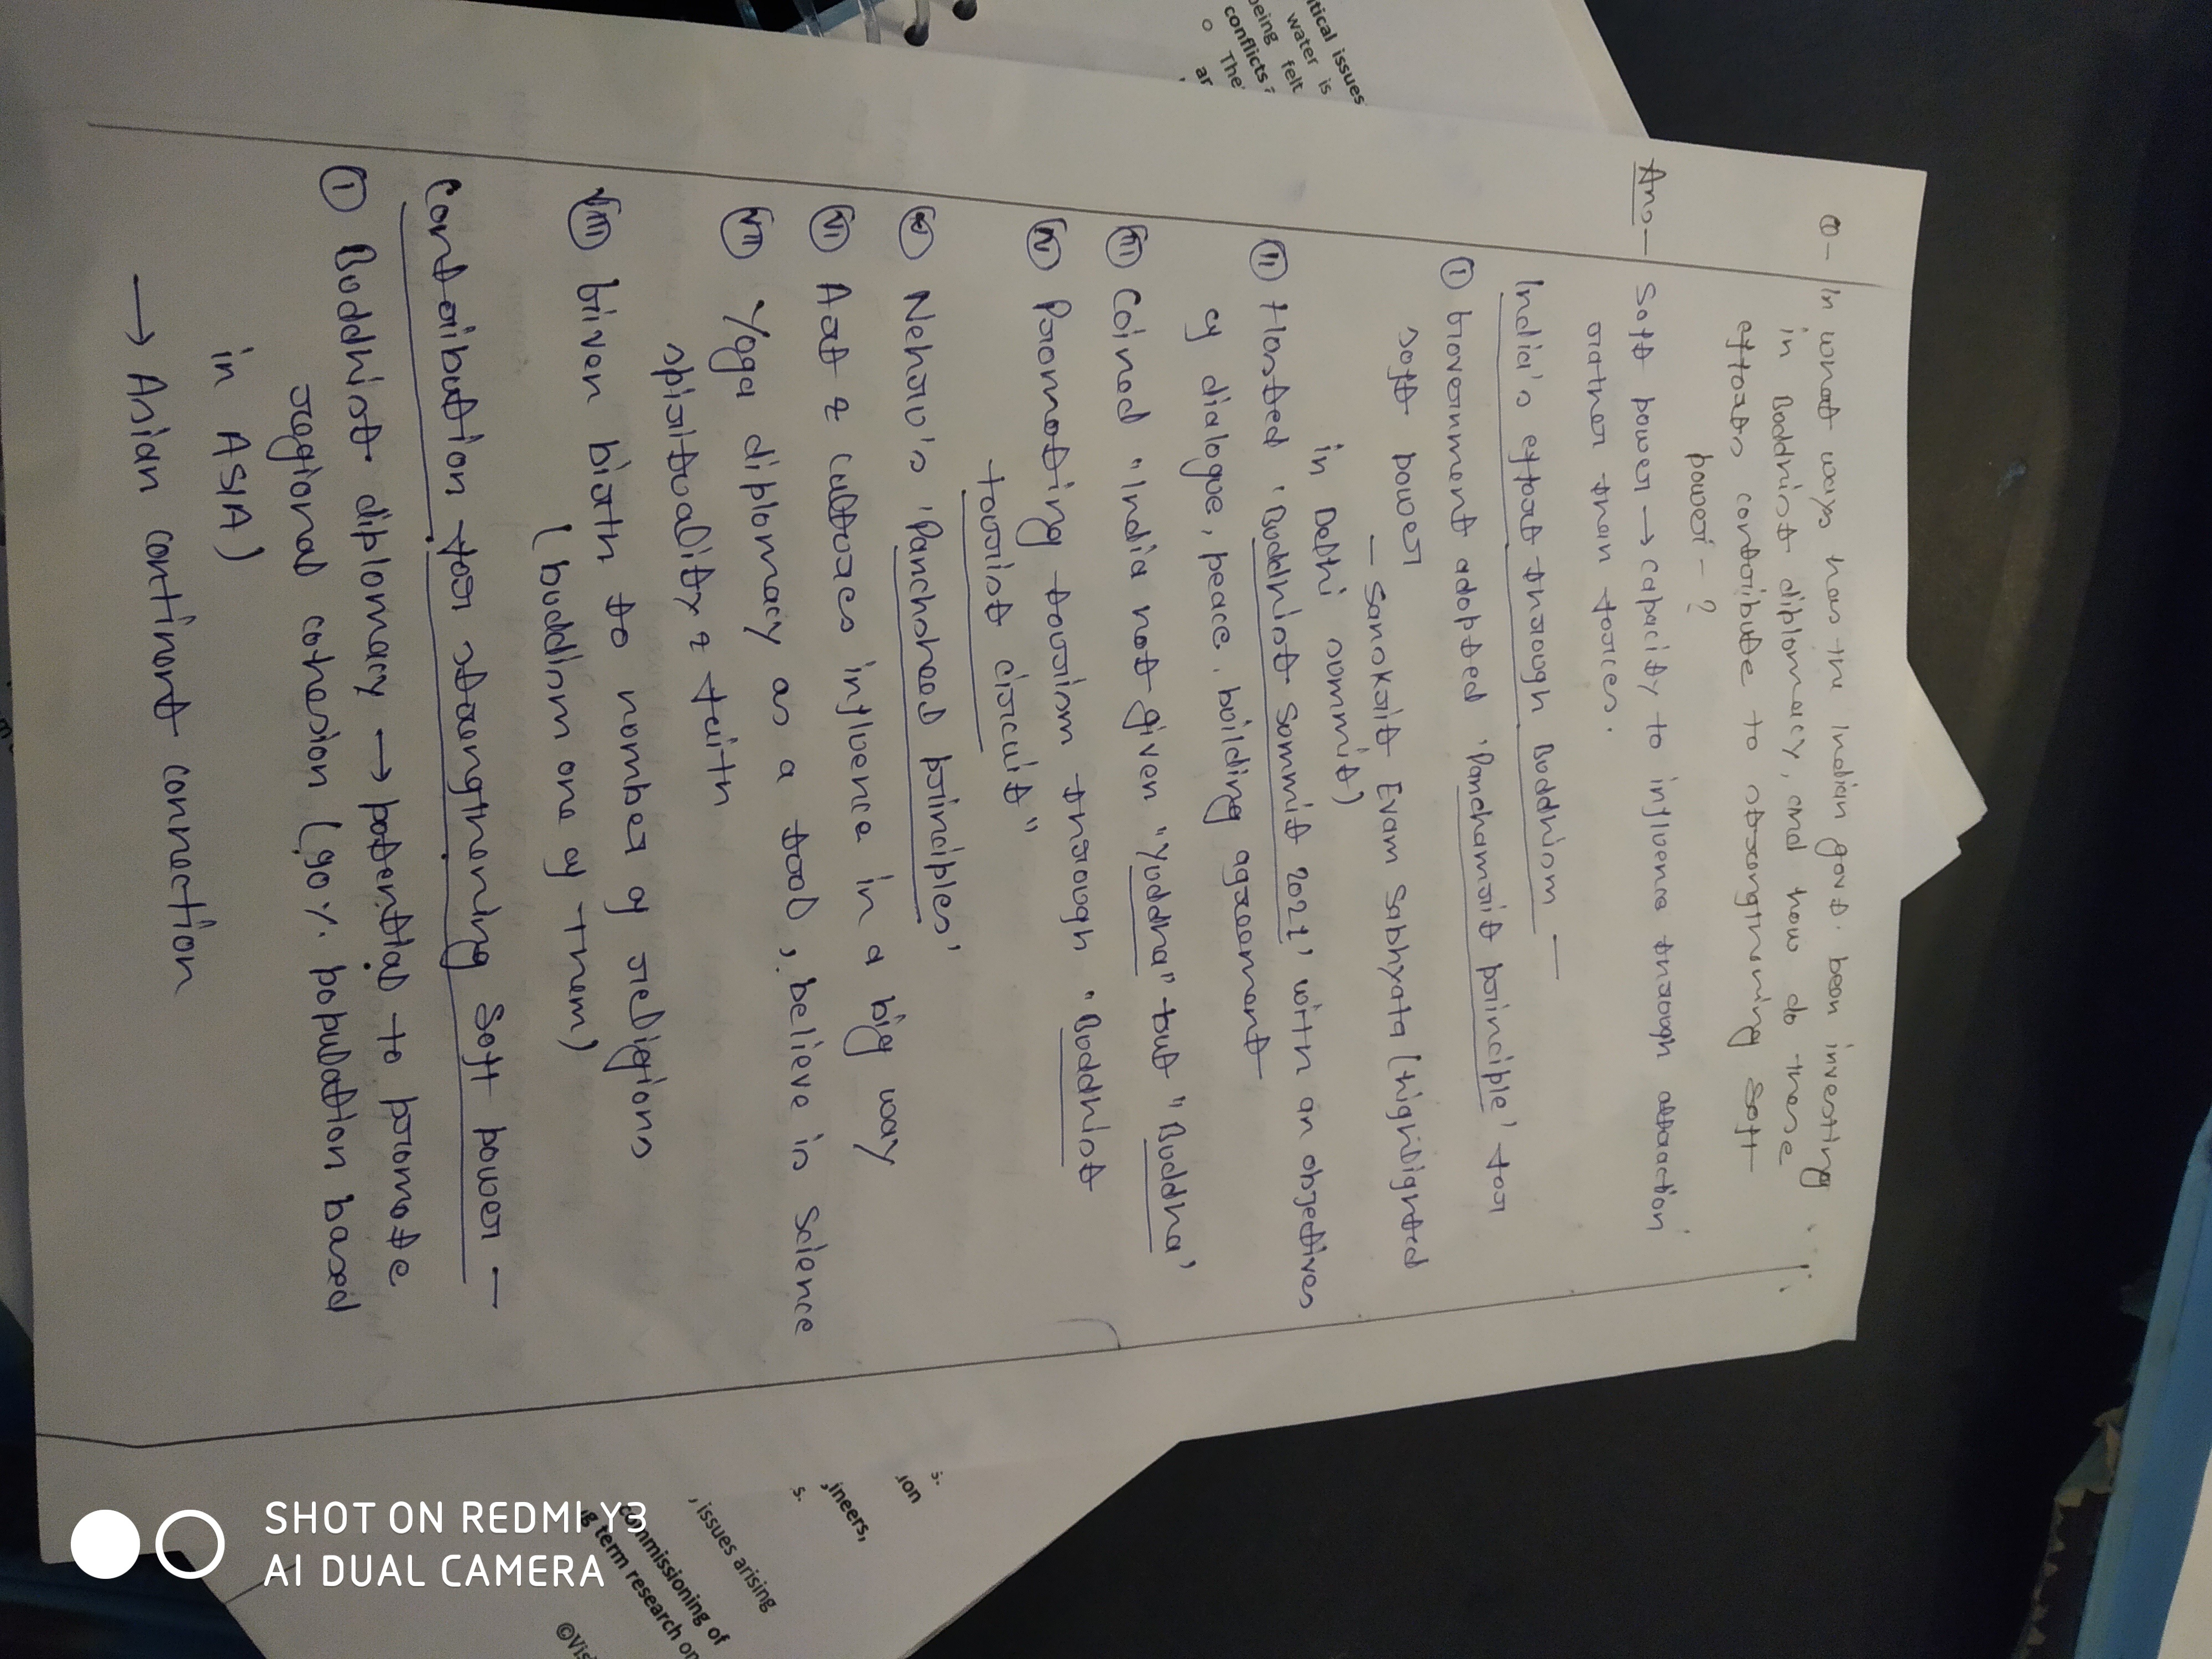 Q- In what ways has the Indian govt. been investing
in Buddhist diplomacy, and how do these
efforts contribute to strengthening soft
power - ?
Ans- Soft power → capacity to influence through attraction
rather than forces.
India's effort through Buddhism -
(i) Government adopted 'Panchamrit principle' for
soft power
- Sanskrit Evam Sabhyata (highlighted
in Delhi summit)
(ii) Hosted 'Buddhist Summit 2021' with an objectives
of dialogue, peace, building agreement
(iii) Coined "India not given "Yuddha" but "Buddha'
(iv) Promoting tourism through "Buddhist
tourist circuit"
(v) Nehru's 'Panchsheel principles'
(vi) Art & Cultures influence in a big way
(vii) Yoga diplomacy as a tool, believe in Science
spirituality & faith
(viii) Given birth to number of religions
(buddism one of them)
Contribution for strengthening Soft power -
(i) Buddhist diplomacy → potential to promote
regional cohesion (90% population based
in ASIA)
→ Asian continent connection
itical issues
water is
being felt
conflicts
o The
ar
s.
ion
ineers,
s.
, issues arising
commissioning of
g term research on
©Vis
SHOT ON REDMI Y3
AI DUAL CAMERA